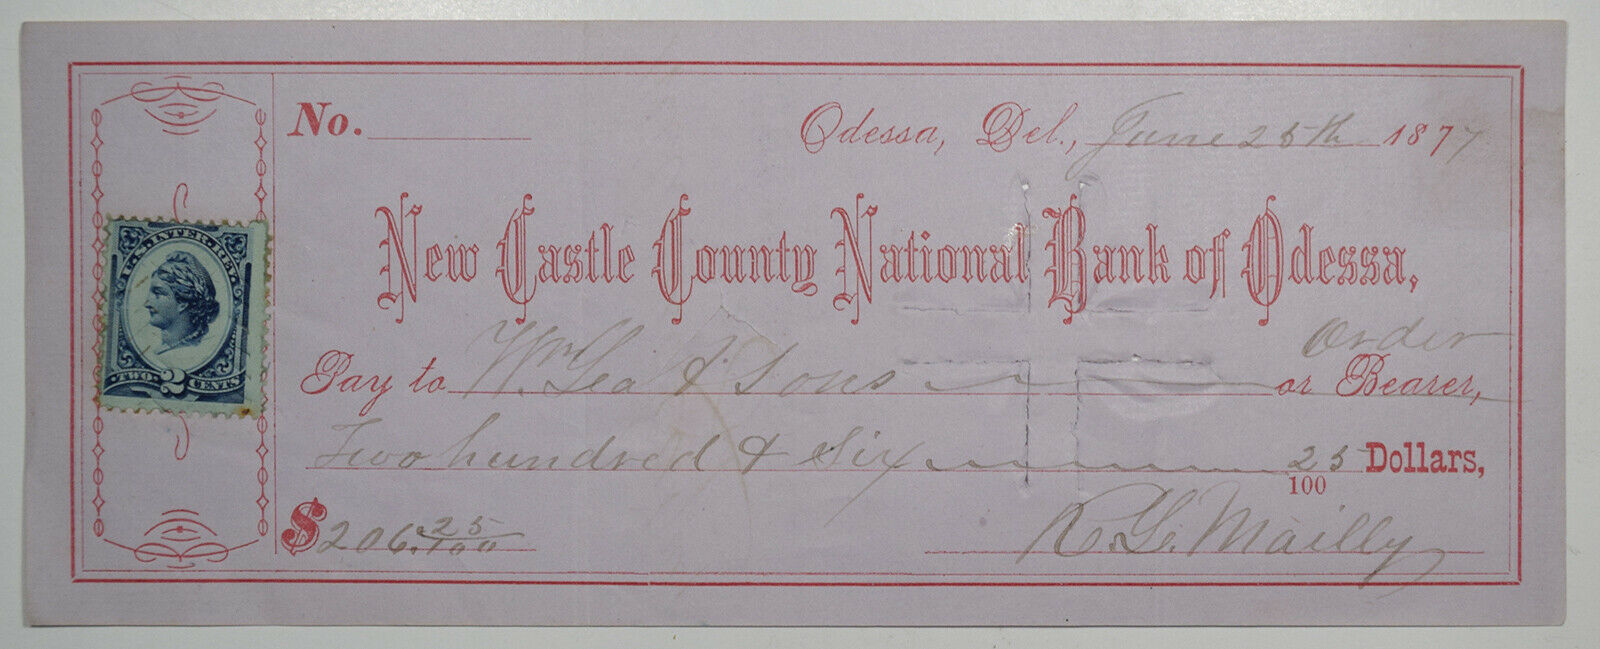 No.
Odessa, Del., June 25th 1877
New Castle County National Bank of Odessa,
Pay to Wm Lea & Sons or Bearer,
Order
Two hundred & Six 25/100 Dollars,
$206.25/100
R. G. Mailly
U.S. INTER. REV.
TWO 2 CENTS